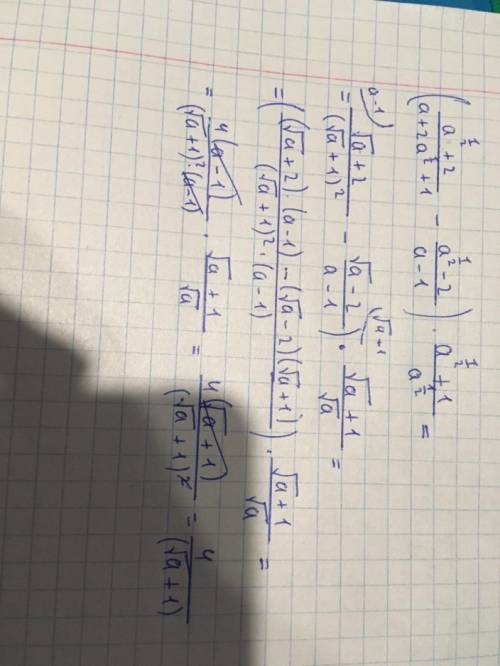 ( (a^{1/2} + 2)/(a + 2a^{1/2} + 1) − (a^{1/2} − 2)/(a − 1) ) · (a^{1/2} + 1)/a^{1/2} =
a−1) √a+1
= (√a + 2)/(√a + 1)² − (√a − 2)/(a − 1) ) · (√a + 1)/√a =
= ( ((√a + 2) · (a − 1) − (√a − 2)(√a + 1))/((√a + 1)² · (a − 1)) ) · (√a + 1)/√a =
= 4(a − 1)/((√a + 1)² · (a − 1)) · (√a + 1)/√a = 4(√a + 1)/(√a + 1)² = 4/(√a + 1)